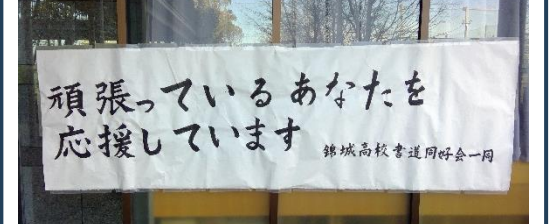 頑張っているあなたを
応援しています
錦城高校書道同好会一同